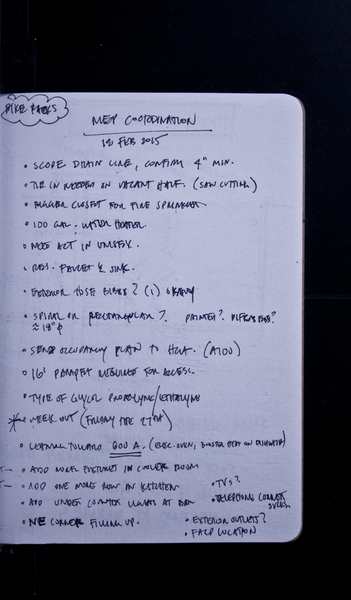 BIKE RACKS
MEP COORDINATION
12 FEB 2015
• SCOPE DRAIN LINE, CONFIRM 4" MIN.
• TIE IN NEEDED ON VACANT HALF. (SAW CUTTING)
• BIGGER CLOSET FOR FIRE SPRINKLER
• 100 GAL. WATER HEATER
• NOT ACT IN UNISEX.
• FAUCET & SINK.
• EXTERIOR HOSE BIBBS? (1)
• SPIRAL OR RECTANGULAR? PAINTED? DIFFUSERS?
≈ 18" ϕ
• SEND OCCUPANCY PLAN TO (A100)
• 16" PARAPET REQUIRED FOR ACCESS.
• TYPE OF GLYCOL PROPYLENE/ETHYLENE
WEEK OUT (FRIDAY THE 27TH)
• LEANING TOWARD 600 A. (ELEC. OVEN, BOOSTER HEAT ON DISHWASHER)
• ADD MORE FIXTURES IN COOLER ROOM
• ADD ONE MORE ROW IN KITCHEN
• TVS?
• ADD UNDER COUNTER LIGHTS AT BAR
• TELEPHONE CORNER
• NE CORNER FILLING UP.
• EXTERIOR OUTLETS?
• FACP LOCATION